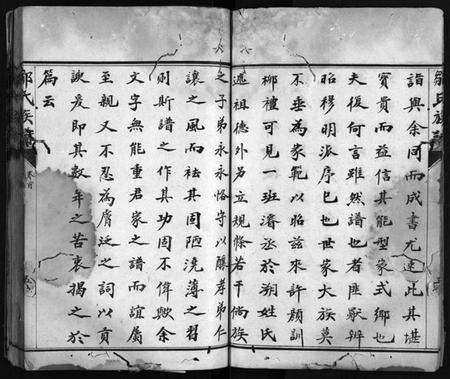 詣與余同而成書尤速此其堪
實貴而益信其能型家式鄉也
夫復何言雖然譜也者匪獻辨
昭穆明派序已也世家大族莫
不垂為家範以昭茲來許類訓
柳禮可見一班濬丞於朔姓氏
述祖德外另立規條若干倘族
之子弟永永恪守以釀孝弟仁
讓之風而祛其固陋澆薄之習
則斯譜之作其功固不偉歟余
文字無能重君家之譜而誼屬
至親又不忍為膚泛之詞以貢
諛爰即其數年之苦衷揭之於
篇云
鄒氏族譜
卷首